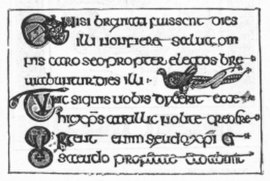 Et nisi breuiata fuissent dies
illi non fieret salua om
nis caro sed propter electos bre
uiabuntur dies illi
Tunc siquis uobis dixerit ecce
hic xps aut illic nolite credere
enim seudo xpi &
seudo